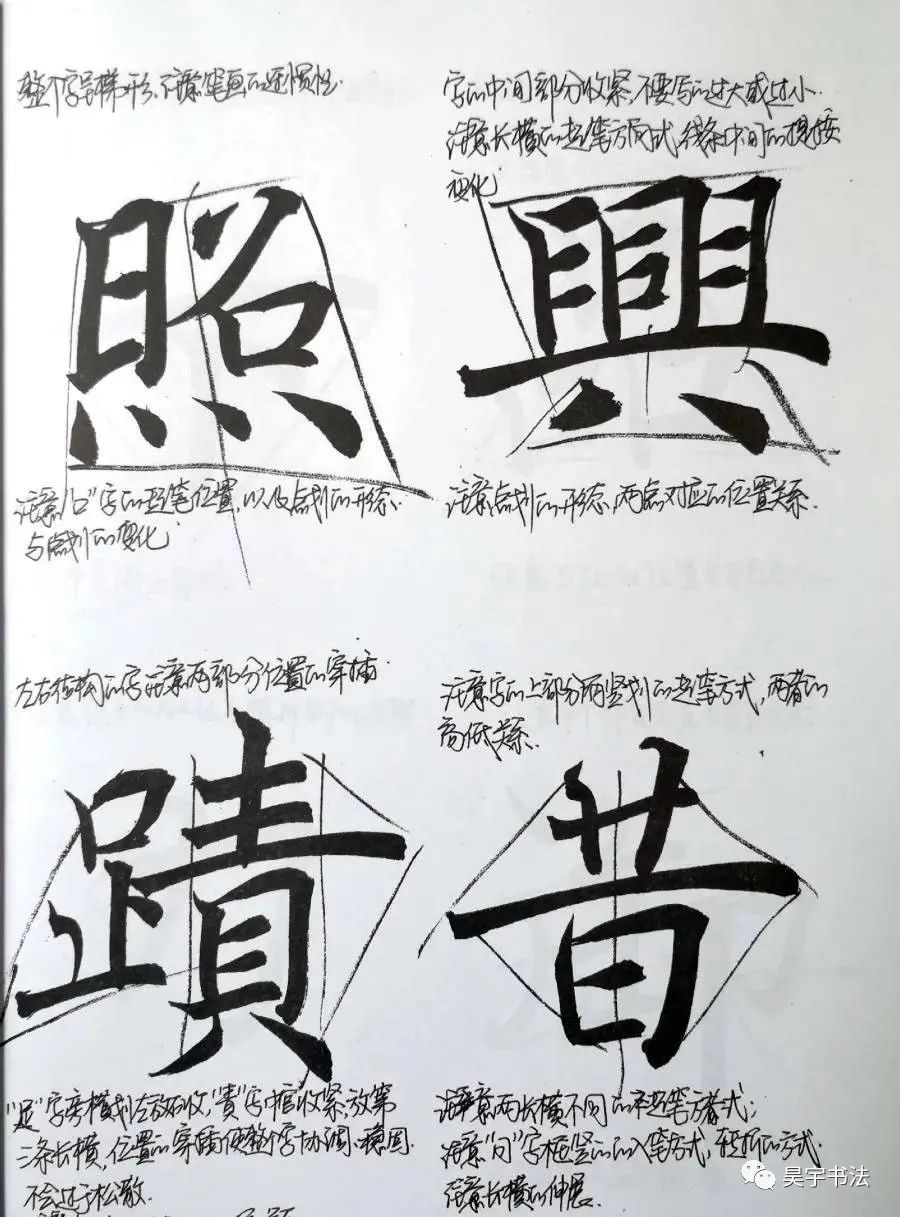 整个字呈梯形,注意笔画的运惯性.
照
注意"口"字的起笔位置,以及点划的形态.
与点划的变化
字的中间部分收紧,不要写的过大或过小.
注意长横的起笔方式,线条中间的提按
变化
興
注意点划的形态,两点对应的位置关系.
左右结构的字注意两部分位置的穿插.
蹟
"足"字旁横划左放右收,"责"字中宫收紧,放第
三条长横,位置的穿插使整个字协调、稳固.
不会过于松散.
注意字的上部分两竖划的起笔方式,两者的
高低关系.
昔
注意两长横不同的起笔方式;
注意"日"字框竖的入笔方式,转折的方式.
注意长横的伸展.
昊宇书法